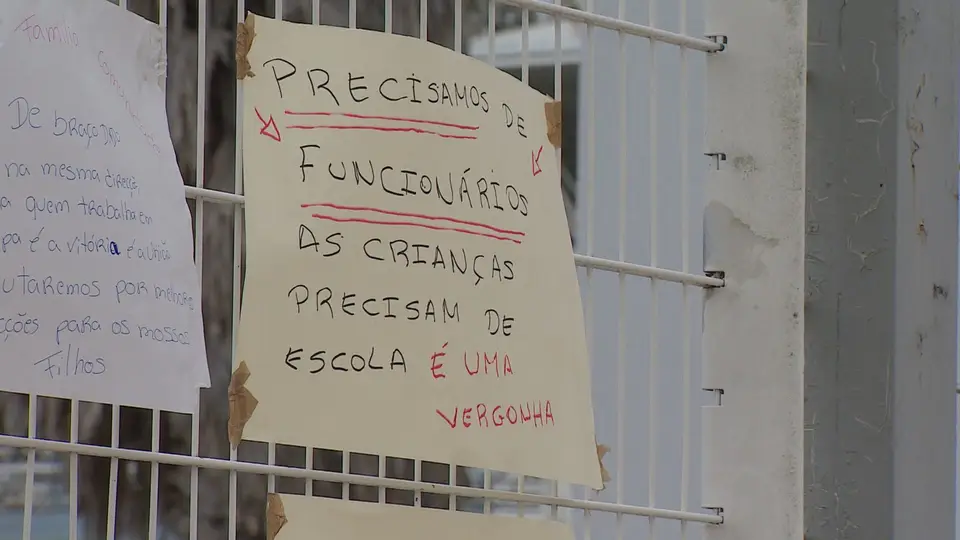 Família
De braço
na mesma direcç
a quem trabalha em
pa é a vitória é a união
utaremos por melhore
cções para os nossos
Filhos
PRECISAMOS DE
FUNCIONÁRIOS
AS CRIANÇAS
PRECISAM DE
ESCOLA É UMA
VERGONHA